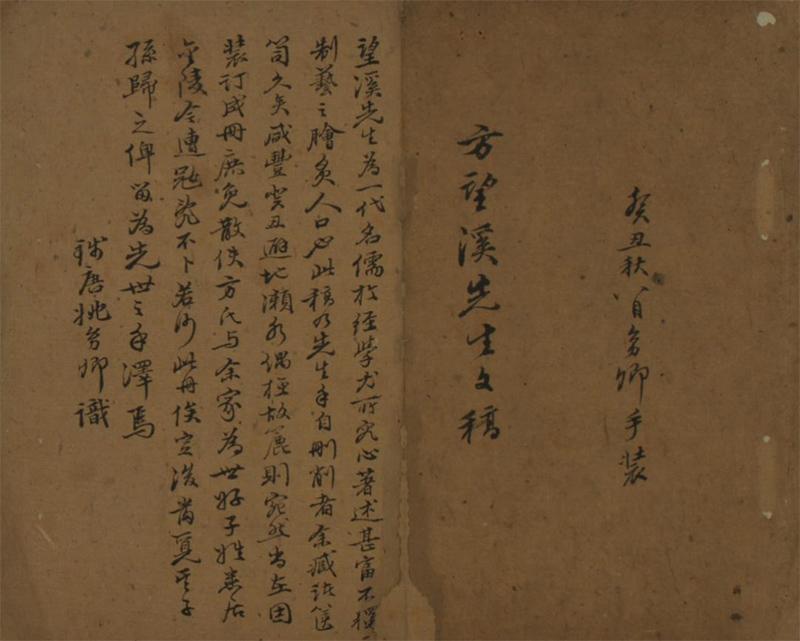 癸丑秋八月多卿手装
方望溪先生文稿
望溪先生為一代名儒於經學尤所究心著述甚富不獨
制藝之膾炙人口也此稿乃先生手自刪削者余臧諸篋
笥久矣咸豐癸丑避地瀨水偶檢故簏則宛然尚在因
装訂成冊庶免散佚方氏与余家為世好子姓悉居
金陵今遭冦氛不卜若何此冊俟定後當覓其子
孫歸之俾留為先世之手澤焉
錢唐姚多卿識